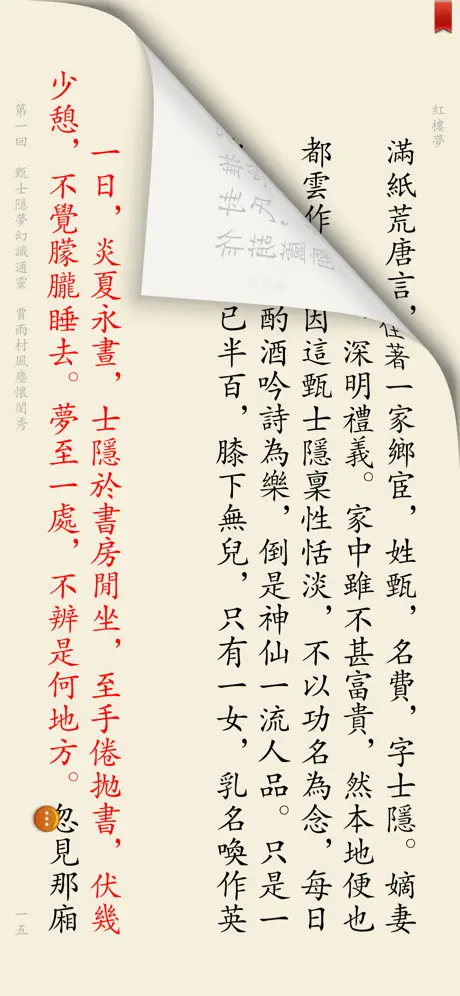 紅樓夢
滿紙荒唐言，
住著一家鄉宦，姓甄，名費，字士隱。嫡妻
深明禮義。家中雖不甚富貴，然本地便也
都雲作
因這甄士隱稟性恬淡，不以功名為念，每日
酌酒吟詩為樂，倒是神仙一流人品。只是一
已半百，膝下無兒，只有一女，乳名喚作英
一日，炎夏永晝，士隱於書房閒坐，至手倦拋書，伏幾
少憩，不覺朦朧睡去。夢至一處，不辨是何地方。忽見那廂
第一回 甄士隱夢幻識通靈 賈雨村風塵懷閨秀
一五